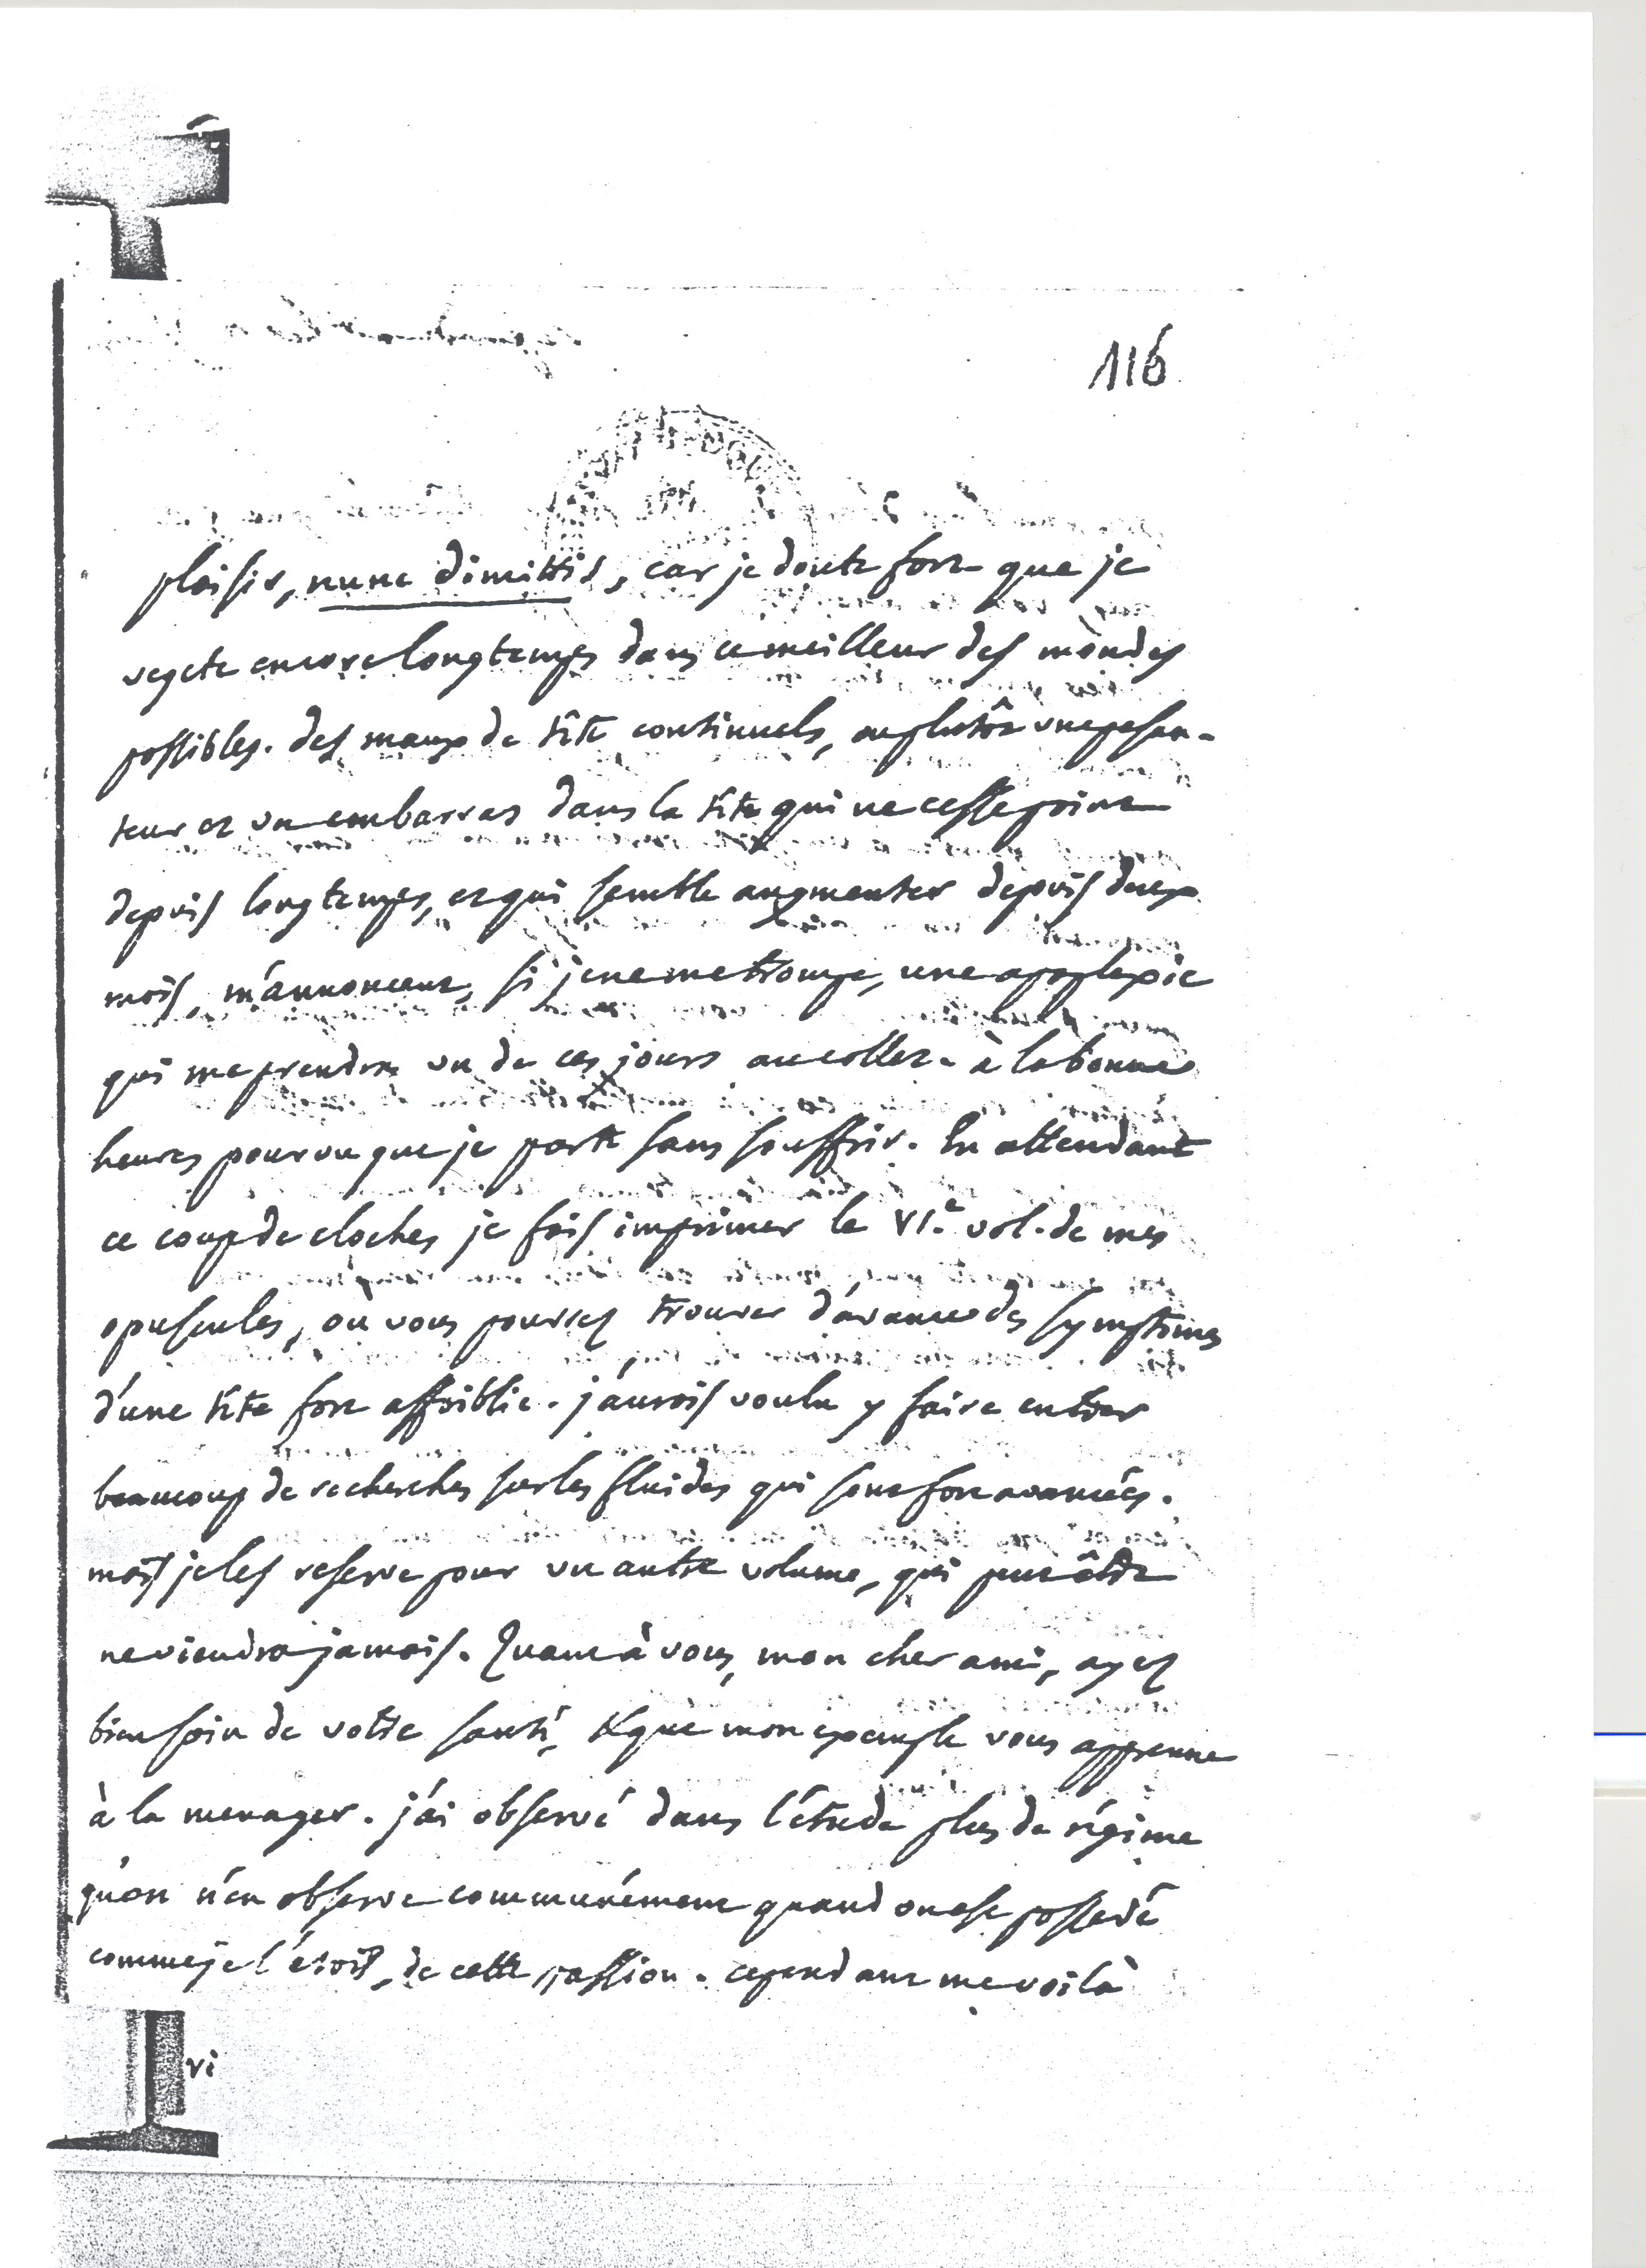 116
plaisir, nunc dimittis, car je doute fort que je
vegete encore longtemps dans ce meilleur des mondes
possibles. des maux de tête continuels, ou plutôt une pesan-
teur et un embarras dans la tête qui ne cesse point
depuis longtemps, et qui semble augmenter depuis deux
mois, m'annoncent, si je ne me trompe, une apoplexie
qui me prendra un de ces jours au collet. à la bonne
heures pourvu que je parte sans souffrir. En attendant
ce coup de cloches je fais imprimer le VI.e vol. de mes
opuscules, où vous pourrez trouver d'avance des symptomes
d'une tête fort affoiblie. j'aurois voulu y faire entrer
beaucoup de recherches sur les fluides qui sont fort avancées.
mais je les reserve pour un autre volume, qui peut être
ne viendra jamais. Quant à vous, mon cher ami, ayez
bien soin de votre santé, & que mon exemple vous apprenne
à la menager. j'ai observé dans l'étude plus de régime
qu'on n'en observe communément quand on est possedé
comme je l'étois, de cette passion. cependant me voilà
vi